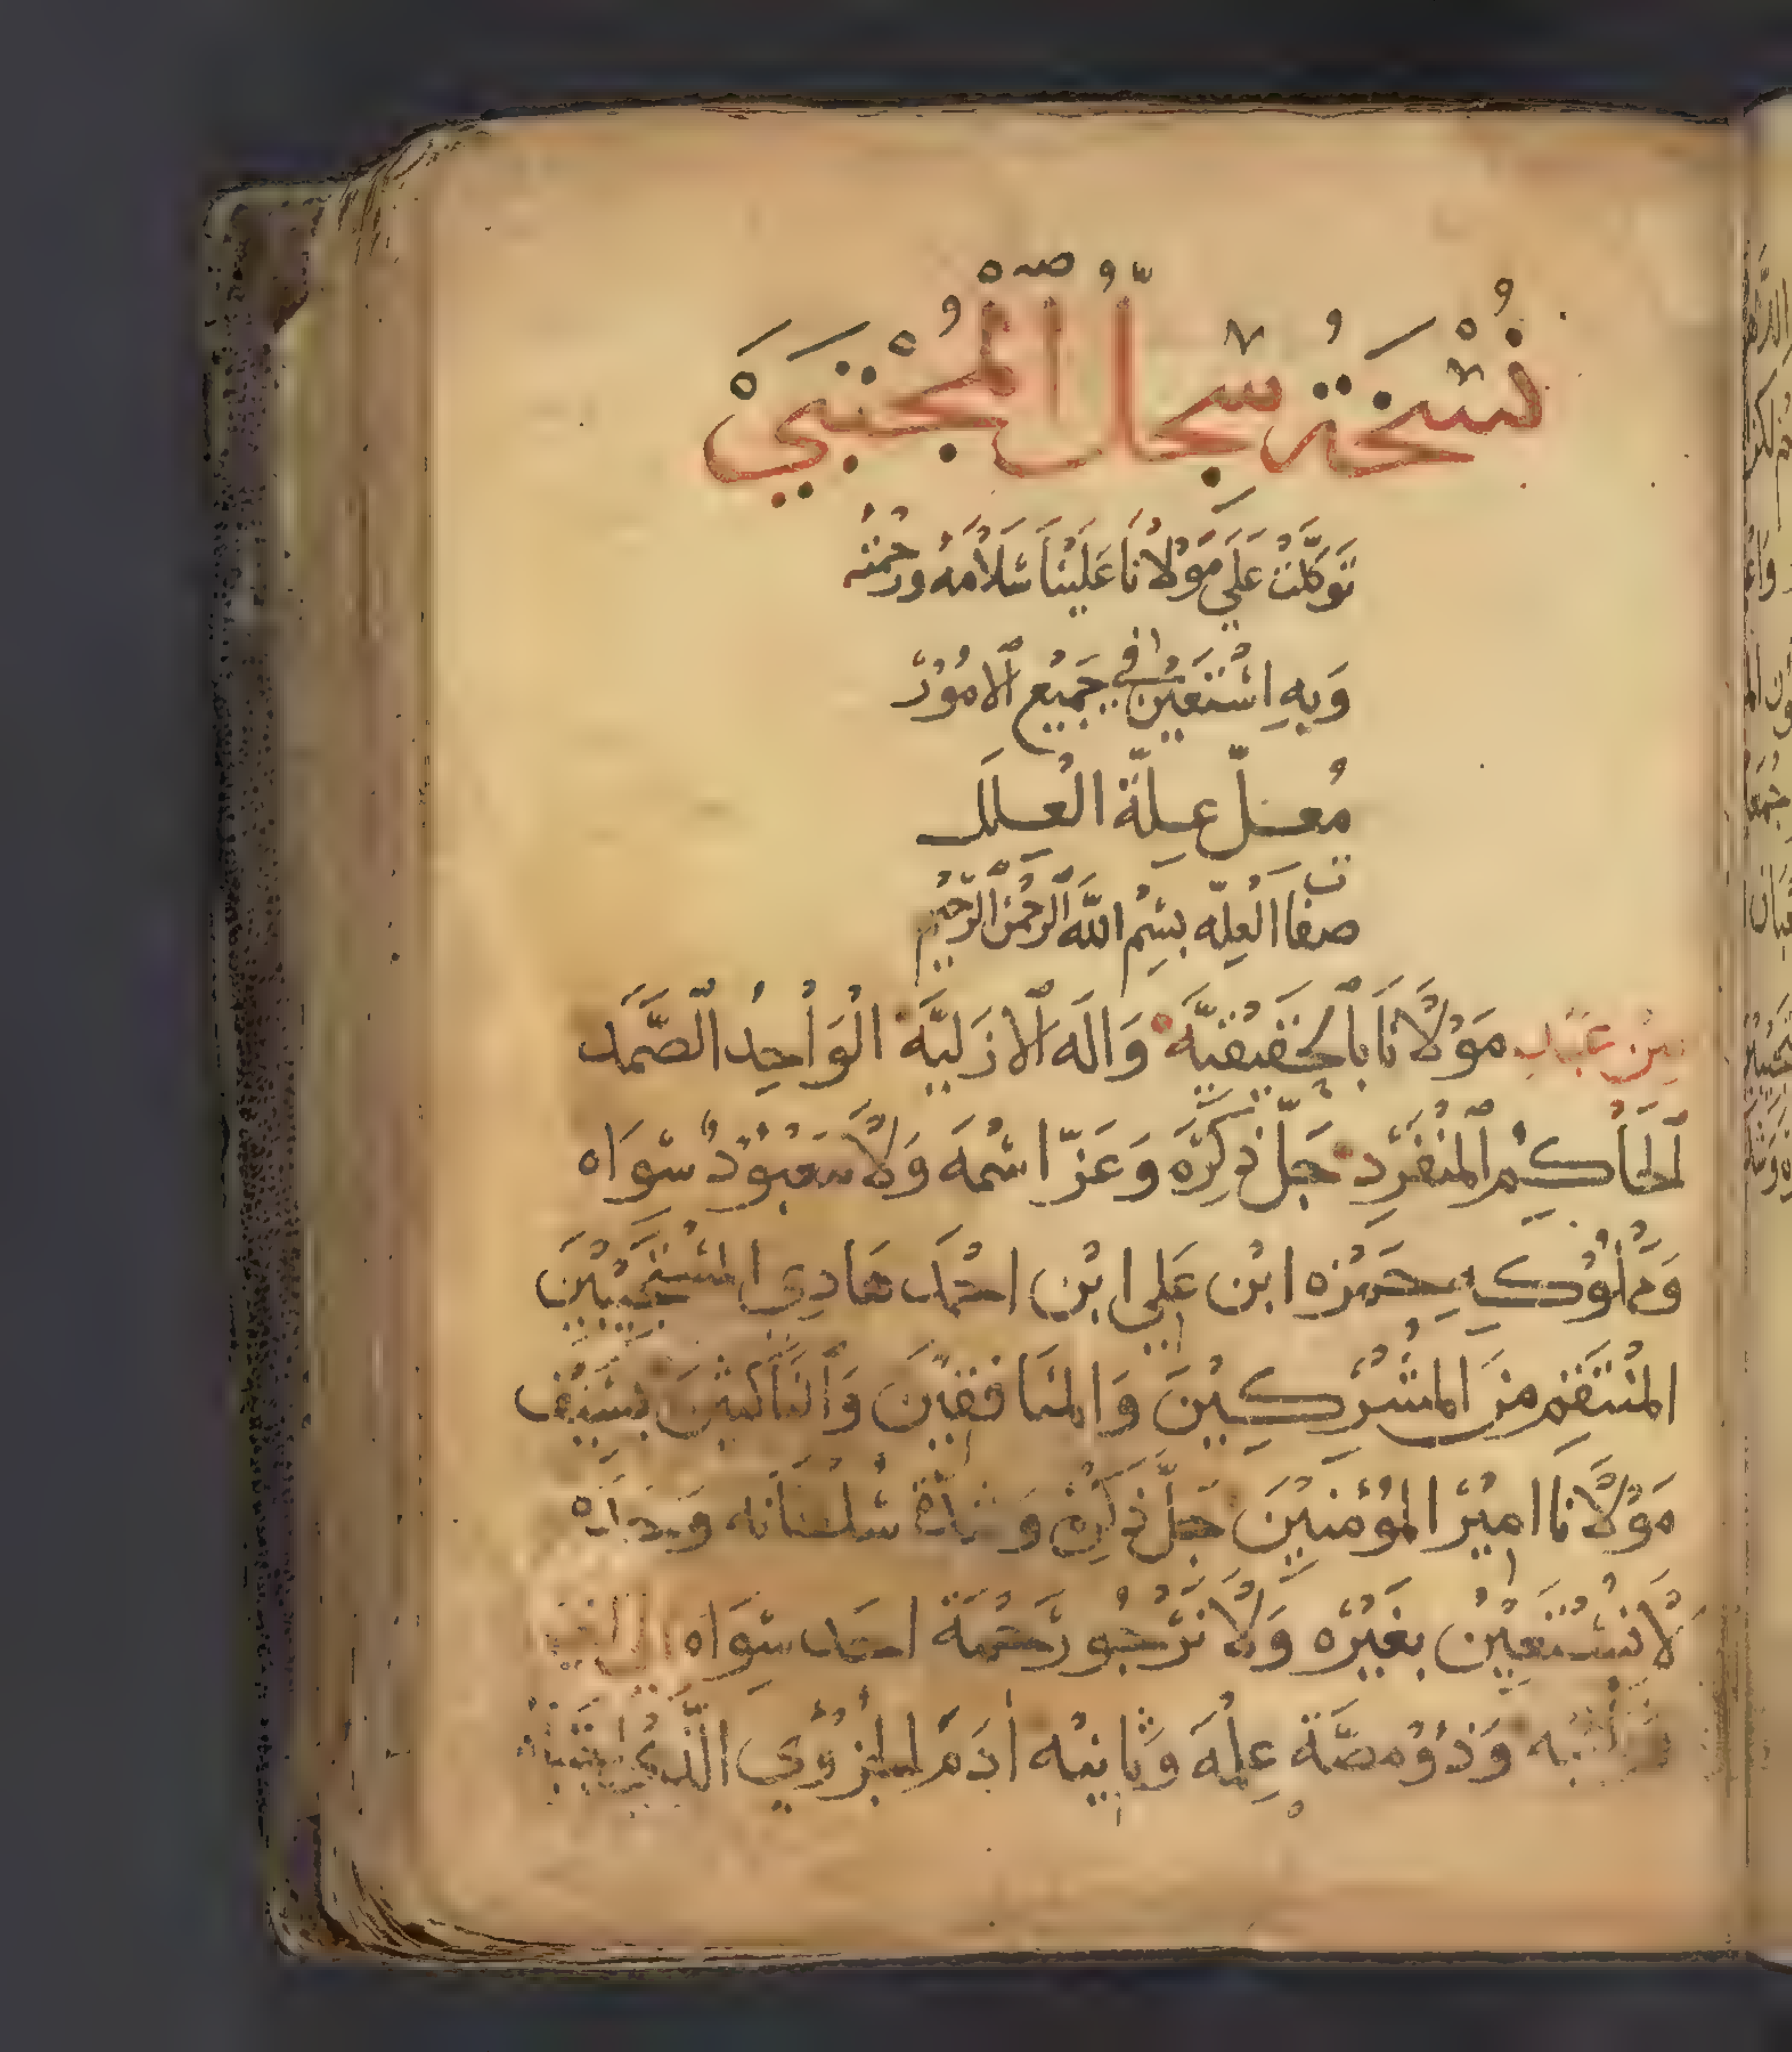 نُسْخَةُ سِجِلُّ ٱلْمُجْتَبَىْ
تَوَكَّلْتُ عَلَى مَوْلَانَا عَلَيْنَا سَلَامُهُ وَرَحْمَتُه
وَبِهِ اسْتَعَيْنُ فِي جَمِيْع ٱلامُوْرْ
مُعِلّ عِلّة العِلَل
صفات العِلّه بِسْمِ اللَّه ٱلرَحْمٰن ٱلرَحِيْم
مِنْ عَبْدِ مَوْلَانَا بِٱلحَقِيْقِيَّة وَالَه ٱلازَلِيَّة الْوَاحِدُ الصَّمَد
ٱلحَاكِمُ المنْفَرِدِ جَلّ ذِكْرَه وَعَزّ اسْمَه وَلا مَعْبُوْدٌ سِوَاه
وَمَمْلُوْكِهِ حَمْزه ابْن عَلِي ابْن احْمَد هَادِي المسْتَجِيْبِيْنَ
المنْتَقِم مِنَ المشْرِكِيْنَ وَالمنَافِقِيْن وَالنَّاكِثِيْنَ بِسَيْف
مَوْلَانَا امِيْرْ المؤْمِنِيْنَ جَلَّ ذِكْرِهْ سُلْطَانَه وَحْدَه
لَا نَسْتَعِيْنُ بِغَيْرِه وَلَا نَرْجُو رَحْمَة احَد سِوَاه
وَذُوْ مصَّة عِلْمَه وثَانِيْه أدَمَ الجزْوِي الَّذِي